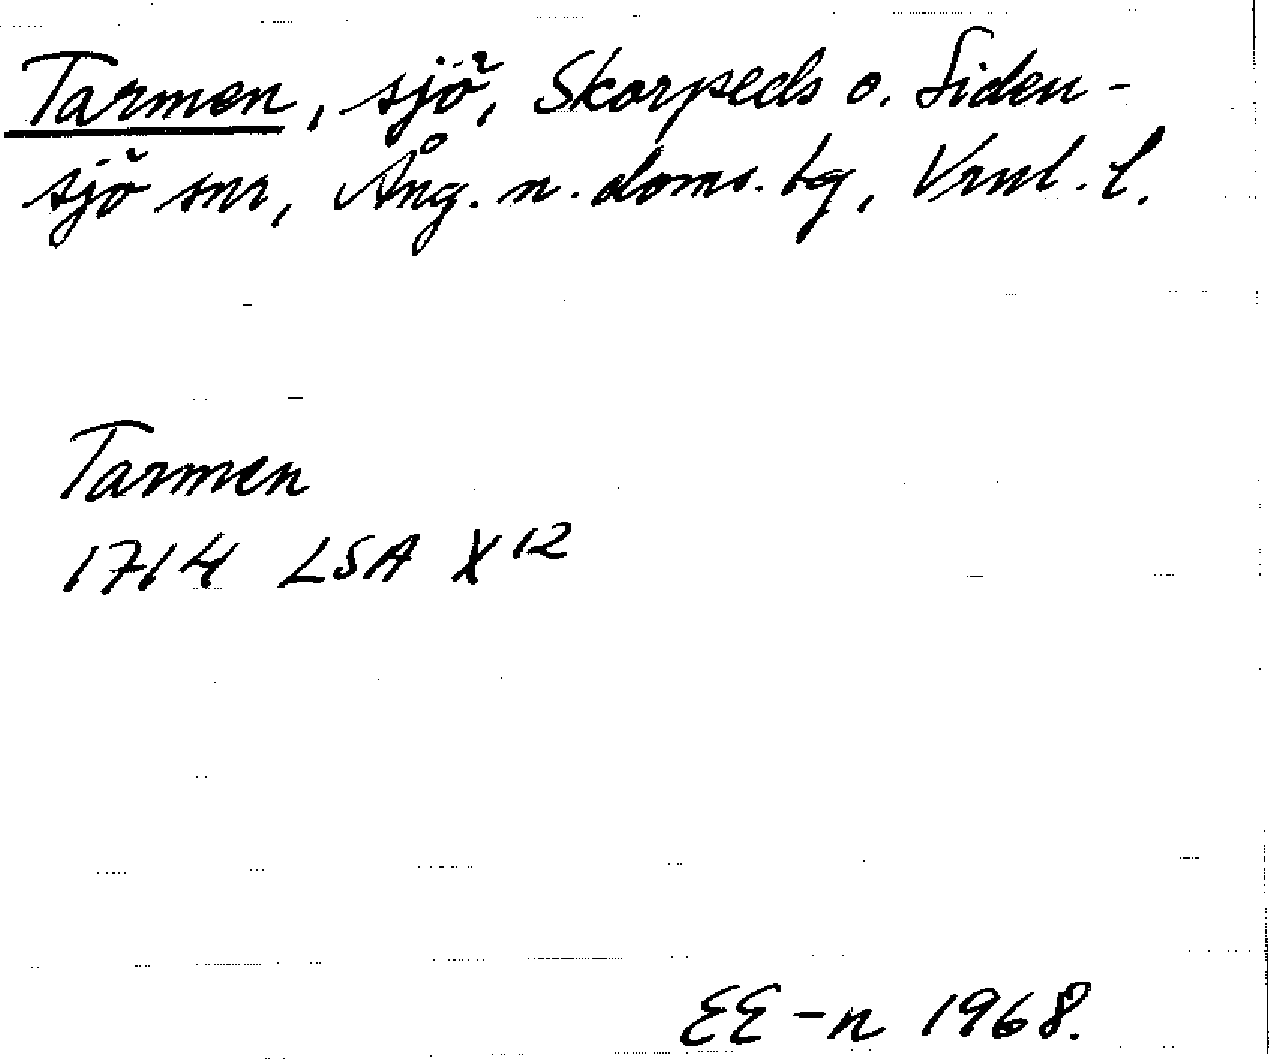 Tarmen, sjö, Skorpeds o. Siden-
sjö snr, Ång. n. doms. tg, Vrnl. l.
Tarmen
1714 LSA X 12
EE-n 1968.